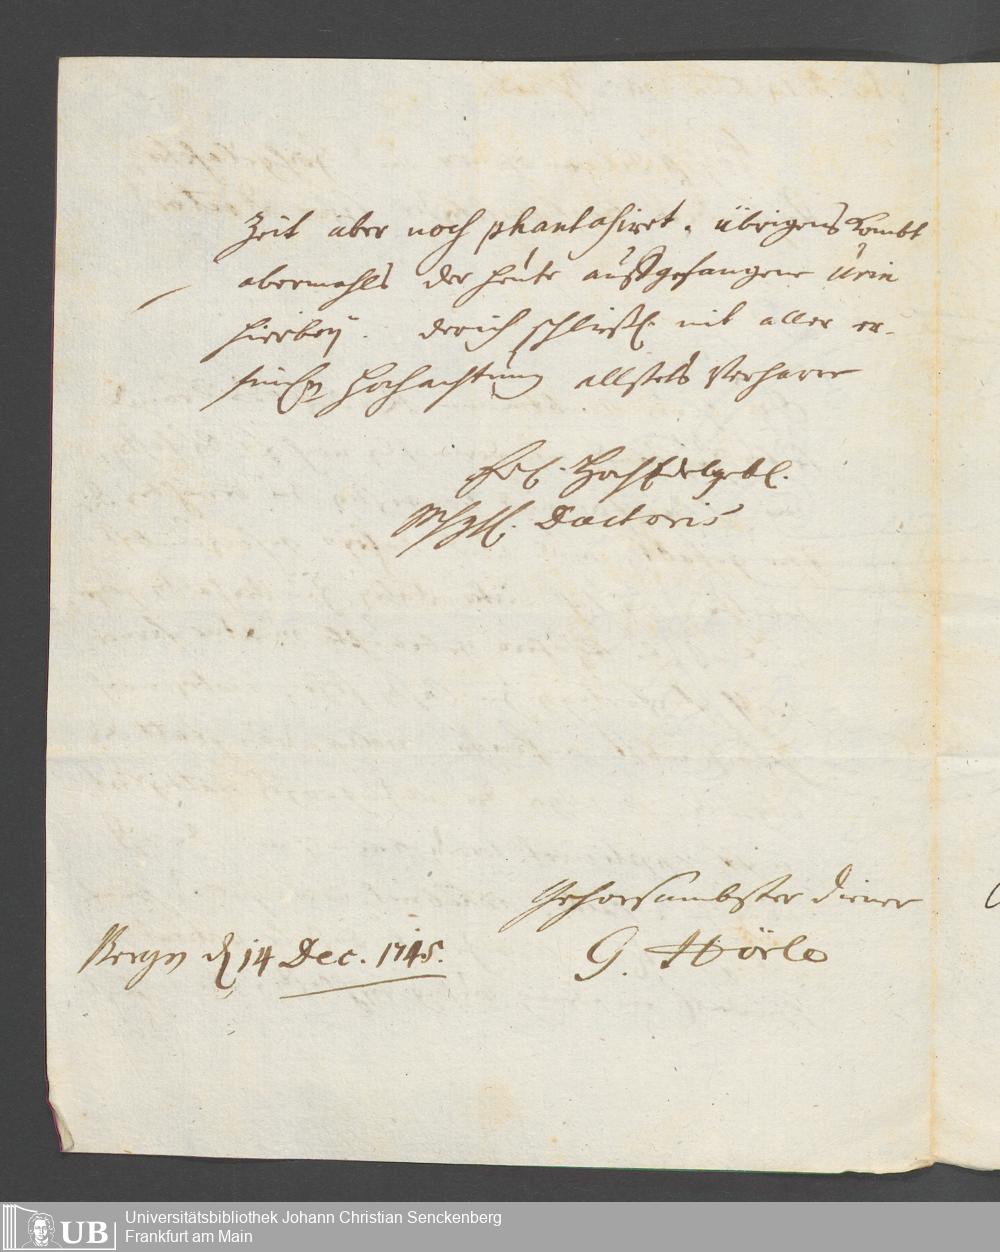 Zeit aber noch phantasiret. übrigens kombt
abermahls der heüte aufgefangene Urin
hierbeÿ. der ich schließl. mit aller er-
Hochachtung allstets Verharre
Hochedelgebl.
Doctoris
Gehorsambster diener
Bergen d 14 Dec. 1745.
G. Hörle
UB
Universitätsbibliothek Johann Christian Senckenberg
Frankfurt am Main